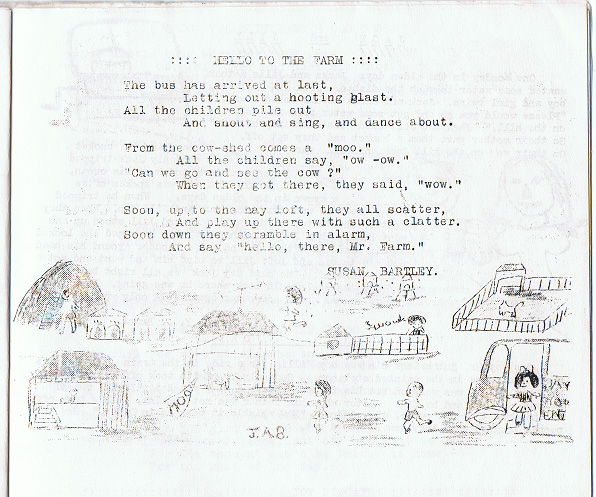 :::: HELLO TO THE FARM ::::
The bus has arrived at last,
Letting out a hooting blast.
All the children pile out
And shout and sing, and dance about.
From the cow-shed comes a "moo."
All the children say, "ow -ow."
"Can we go and see the cow ?"
When they got there, they said, "wow."
Soon, up to the hay loft, they all scatter,
And play up there with such a clatter.
Soon down they scramble in alarm,
And say "hello, there, Mr. Farm."
SUSAN BARTLEY.
MOO
J.A.B.